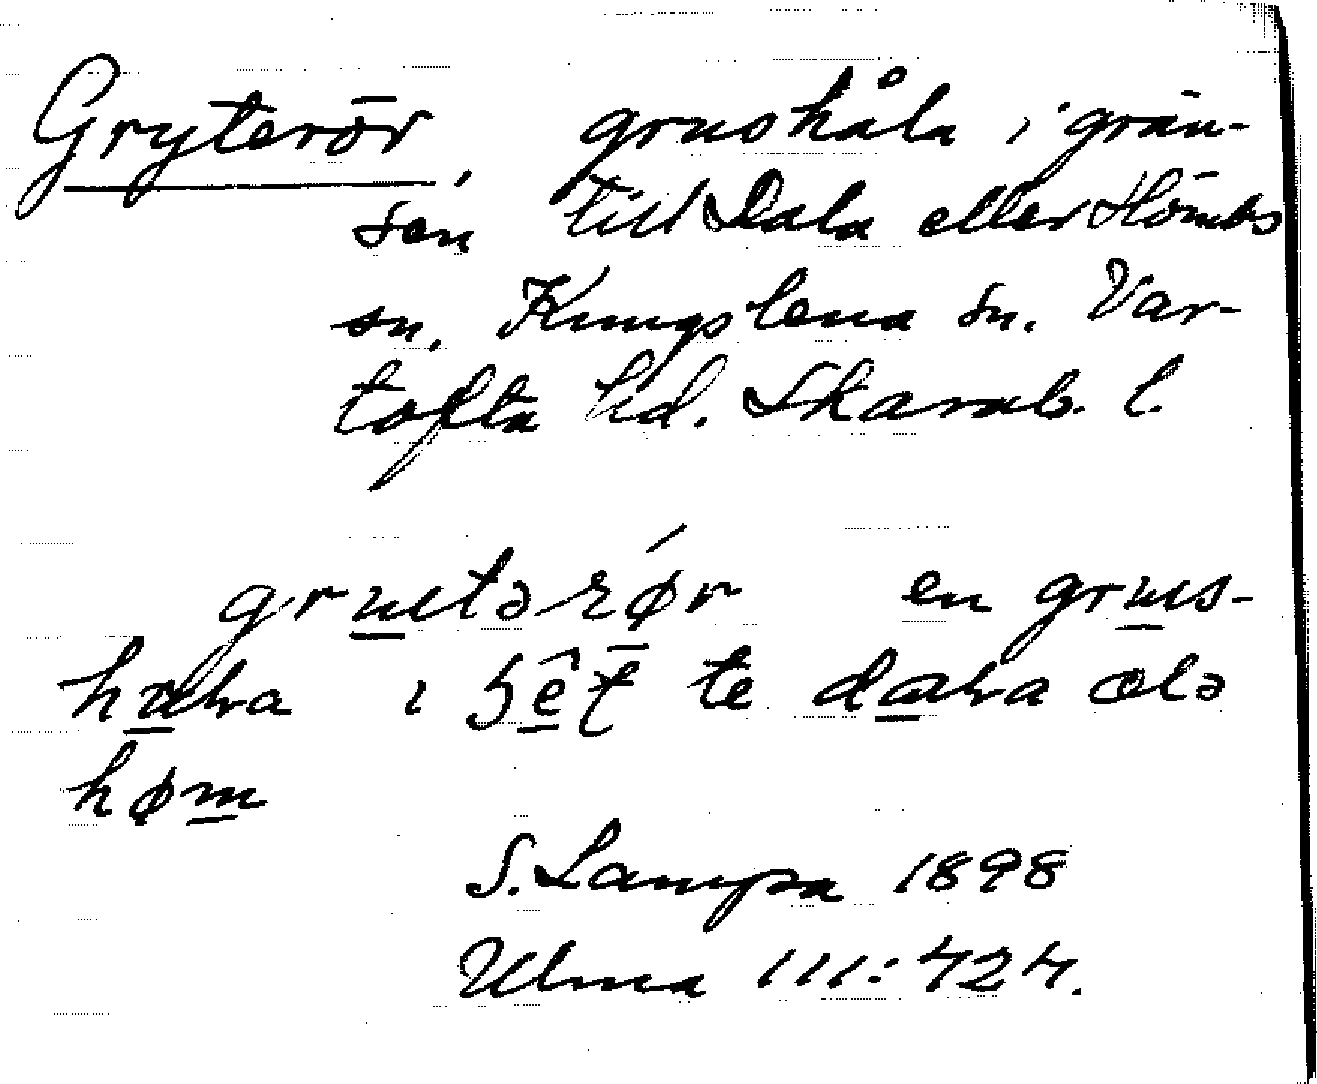 Gryterör, grushåla i grän-
sen till Dala eller Hömbs
sn. Kungslena sn. Var-
tofta hd. Skarab. l.
en grus-
i te dala
høm
S. Lampa 1898
Ulma 111:424.